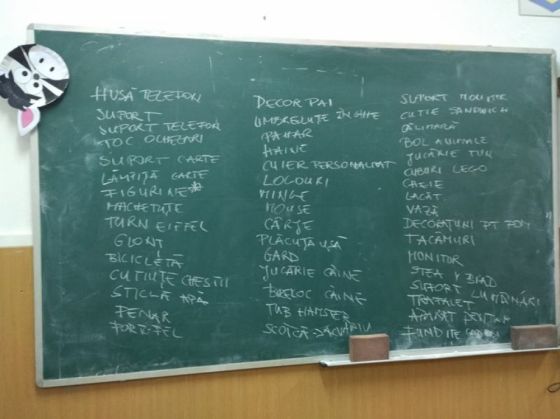 HUSĂ TELEFON
SUPORT
SUPORT TELEFON
TOC OCHELARI
SUPORT CARTE
LĂMPIȚĂ CARTE
FIGURINE*
MACHETUȚE
TURN EIFFEL
GLONȚ
BICICLETĂ
CUTIUȚE CHESTII
STICLĂ APĂ
PENAR
PORT-FEL
DECOR PAI
UMBRELUȚE
PAHAR
HAINE
CUIER PERSONALIZAT
LOGOURI
MINGE
MOUSE
CÂRJE
PLĂCUȚĂ UȘĂ
GARD
JUCĂRIE CÂINE
BRELOC CÂINE
TUB HAMSTER
SCOICĂ
SUPORT MONITOR
CUTIE SANDWICH
CĂLIMARĂ
BOL ANIMALE
JUCĂRIE TUN
CUBURI LEGO
CHEIE
LACĂT
VAZĂ
DECORAȚIUNI PT POM
TACÂMURI
MONITOR
STEA BRAD
SUPORT LUMÂNĂRI
TRAFALET
APARAT
FUNDIȚE